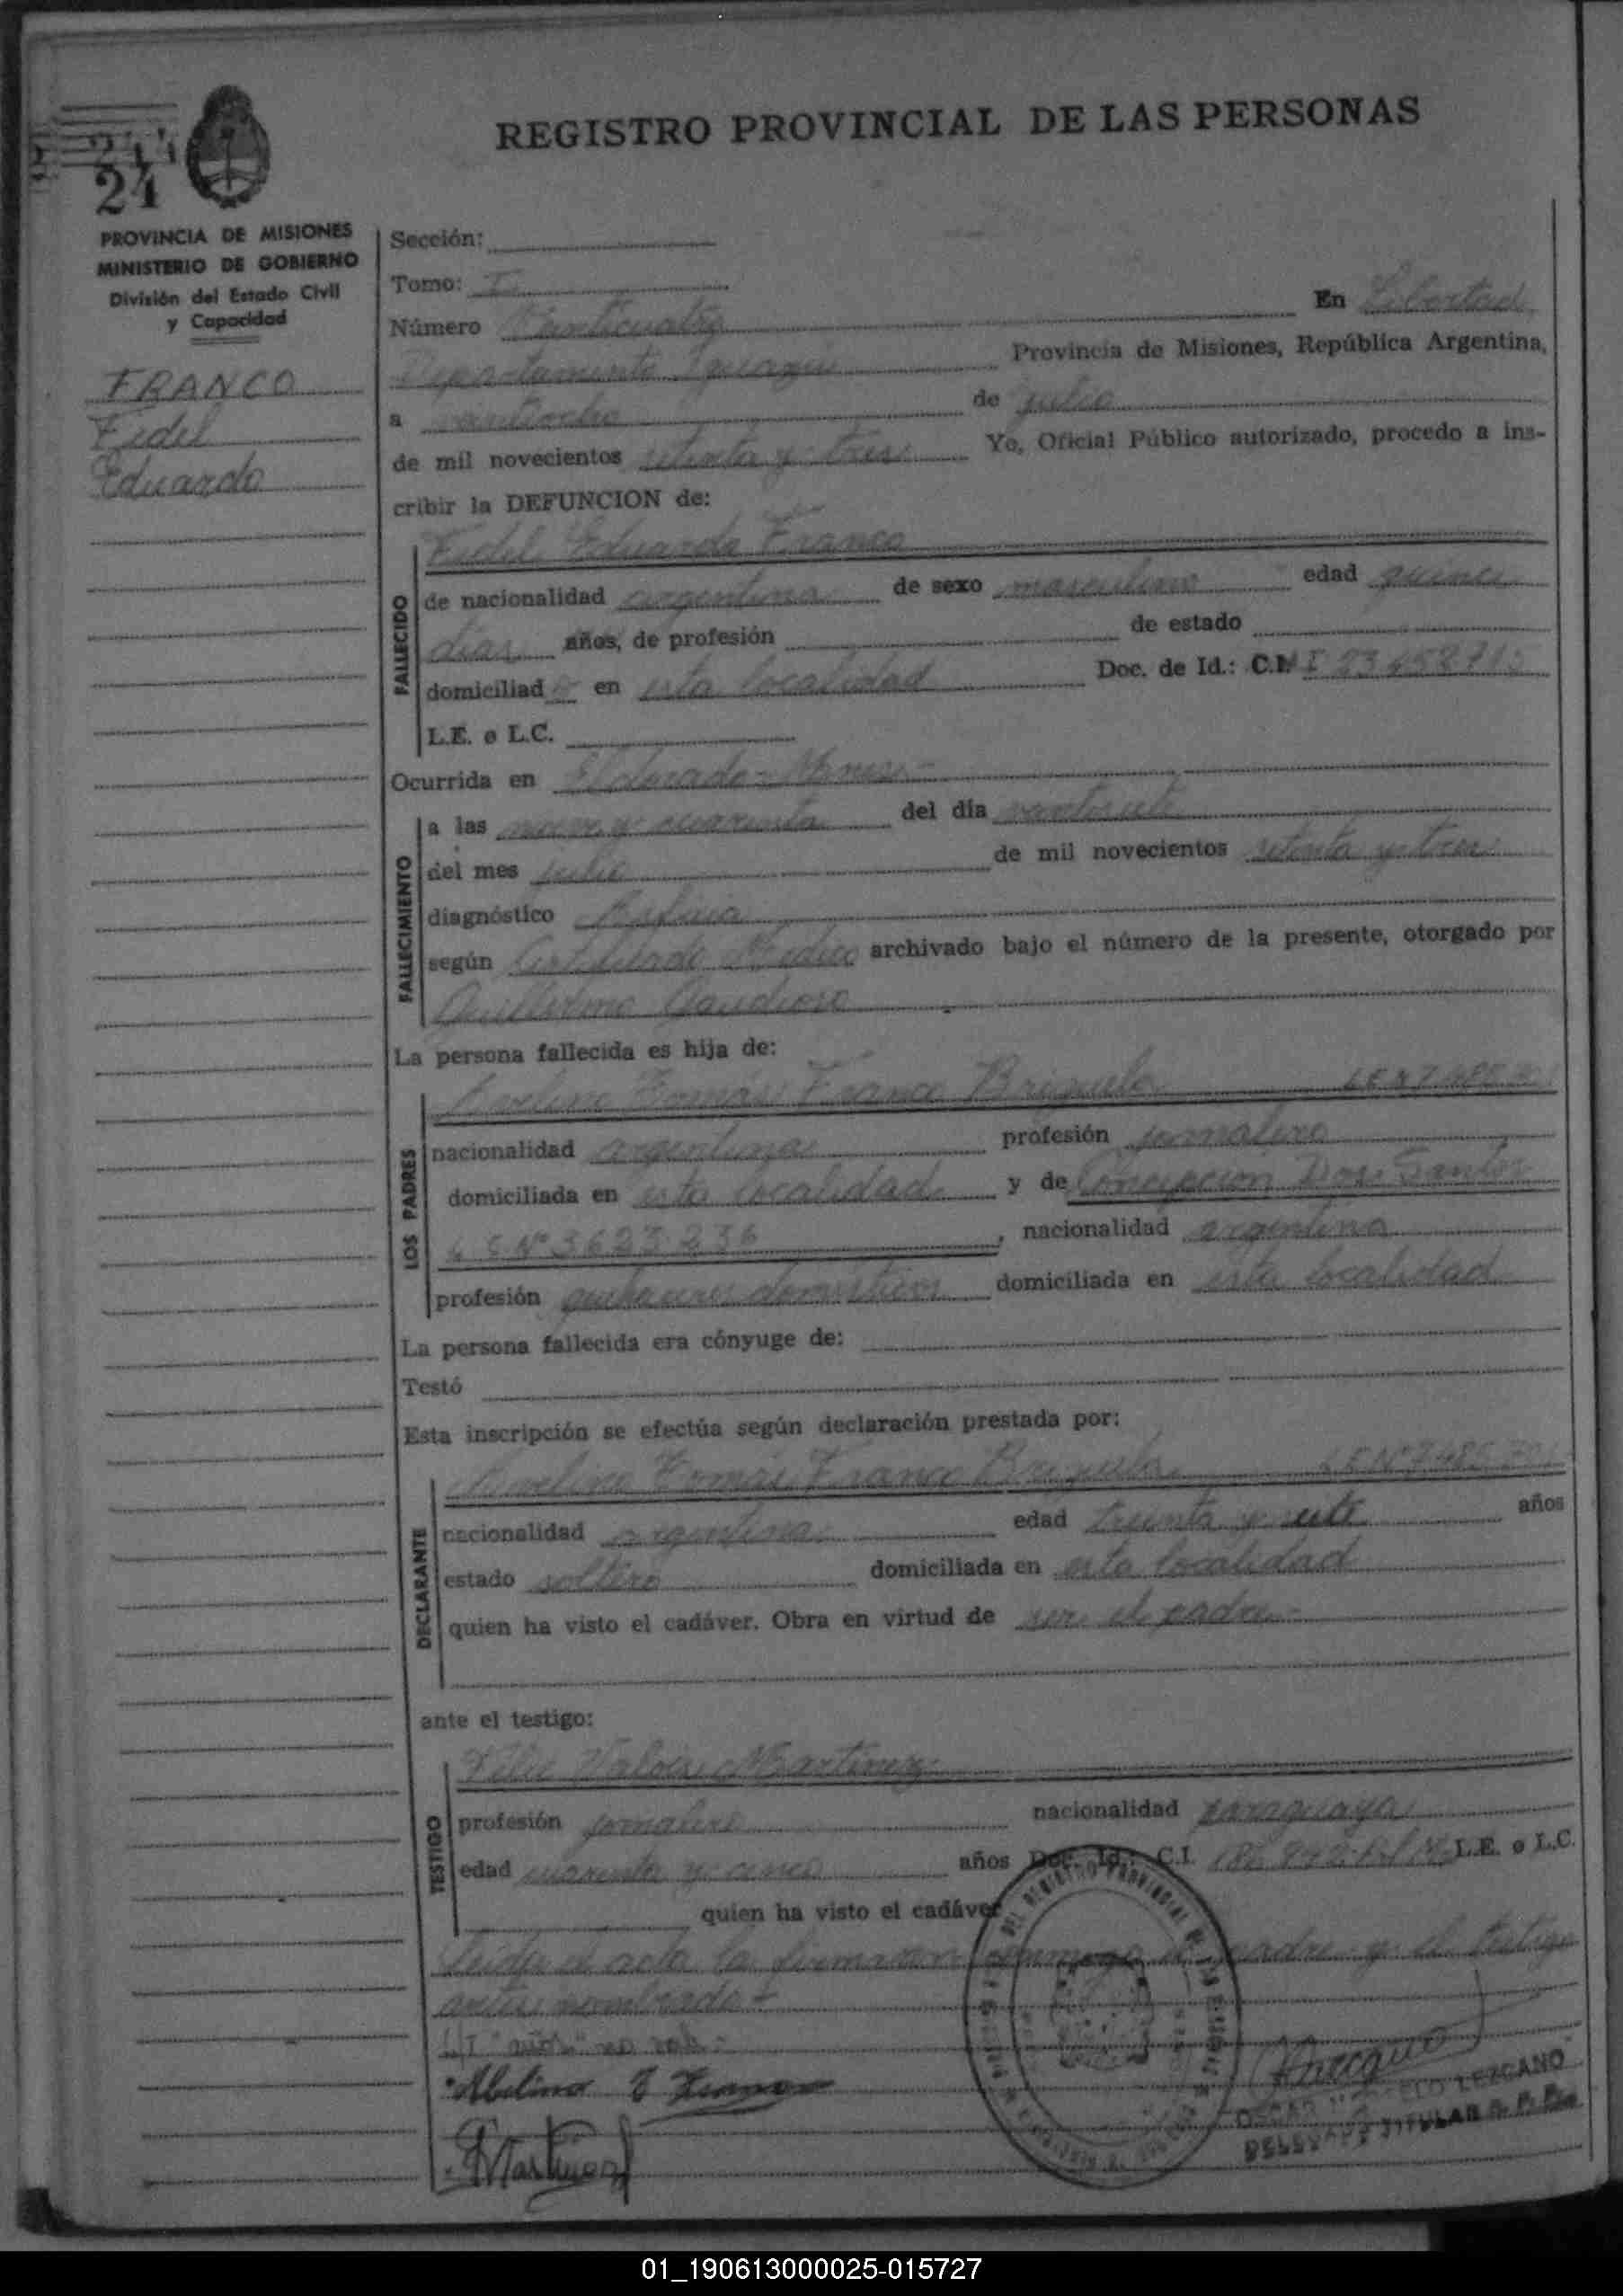 REGISTRO PROVINCIAL DE LAS PERSONAS
24
PROVINCIA DE MISIONES
MINISTERIO DE GOBIERNO
División del Estado Civil
y Capacidad
FRANCO
Fidel
Eduardo
Sección:
Tomo: I
Número Veinticuatro En Libertad
Departamento Iguazú Provincia de Misiones, República Argentina,
a veintiocho de julio
de mil novecientos setenta y tres Yo, Oficial Público autorizado, procedo a ins-
cribir la DEFUNCION de:
Fidel Eduardo Franco
FALLECIDO
de nacionalidad argentina de sexo masculino edad quince
días años, de profesión de estado
domiciliado en esta localidad Doc. de Id.:
L.E. o L.C.
Ocurrida en Eldorado - Mnes -
FALLECIMIENTO
a las nueve y cuarenta del día veintisiete
del mes julio de mil novecientos setenta y tres
diagnóstico Asfixia
según Certificado Médico archivado bajo el número de la presente, otorgado por
Guillermo Gaudioso
La persona fallecida es hija de:
LOS PADRES
Avelino Tomás Franco Brizuela
nacionalidad argentina profesión jornalero
domiciliada en esta localidad y de Concepción Dos Santos
Nº 3623236, nacionalidad argentina
profesión quehaceres domésticos domiciliada en esta localidad
La persona fallecida era cónyuge de:
Testó
Esta inscripción se efectúa según declaración prestada por:
DECLARANTE
Avelino Tomás Franco Brizuela
nacionalidad argentina edad treinta y siete años
estado soltero domiciliada en esta localidad
quien ha visto el cadáver. Obra en virtud de ser el padre -
ante el testigo:
TESTIGO
Félix Valois Martínez
profesión jornalero nacionalidad paraguaya
edad cuarenta y cinco años Doc. Id.: C.I. L.E. o L.C.
quien ha visto el cadáver
Leída el acta la firmaron conmigo el padre y el testigo
antes nombrado -
"años" no vale -
Abelino T Franco
Martinez
OSCAR LEZCANO
DELEGADO TITULAR R. P. P.
01_190613000025-015727